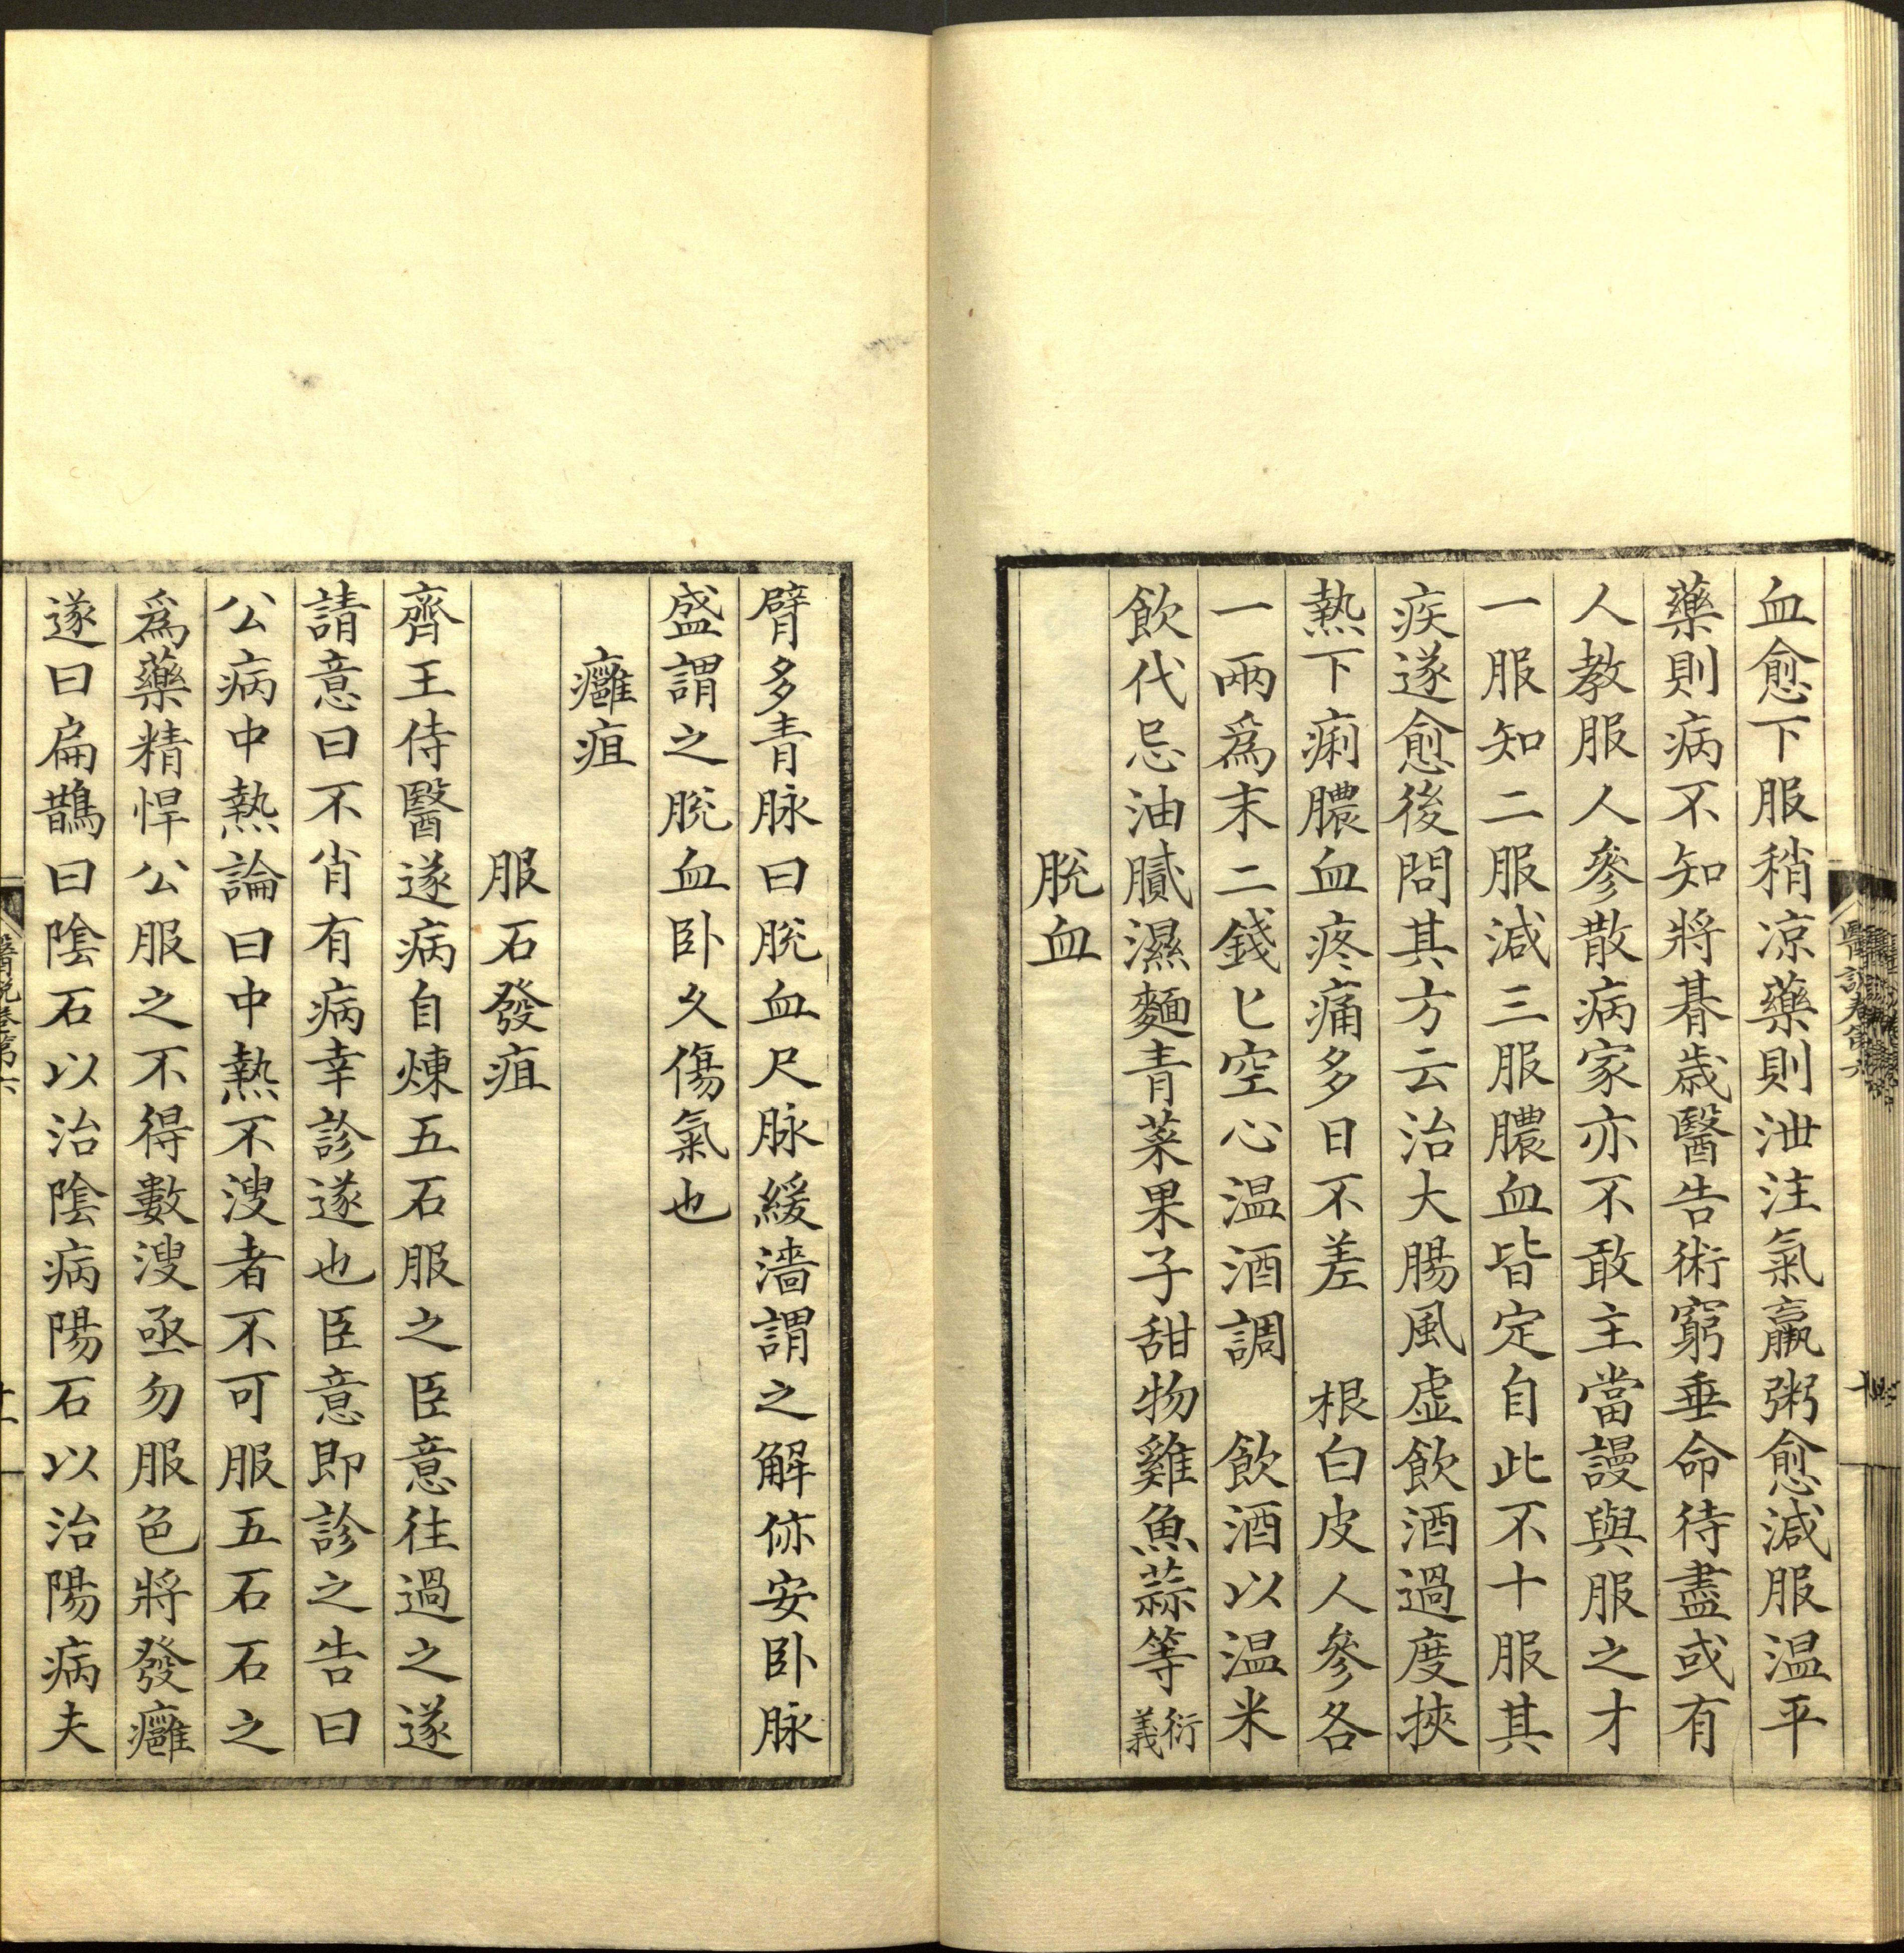 血愈下服稍凉藥則泄注氣羸粥愈減服温平
藥則病不知將朞歳醫告術窮垂命待盡或有
人教服人參散病家亦不敢主當謾與服之才
一服知二服減三服膿血皆定自此不十服其
疾遂愈後問其方云治大腸風虚飲酒過度挾
熱下痢膿血疼痛多日不差　根白皮人參各
一兩爲末二錢匕空心温酒調　飲酒以温米
飲代忌油膩濕麵青菜果子甜物雞魚蒜等衍義
脫血
臂多青脉曰脫血尺脉緩濇謂之解㑊安卧脉
盛謂之脫血卧久傷氣也
癰疽
服石發疽
齊王侍醫遂病自煉五石服之臣意往過之遂
請意曰不肖有病幸診遂也臣意即診之告曰
公病中熱論曰中熱不溲者不可服五石石之
爲藥精悍公服之不得數溲亟勿服色將發癰
遂曰扁鵲曰陰石以治陰病陽石以治陽病夫
醫說卷第六
十一